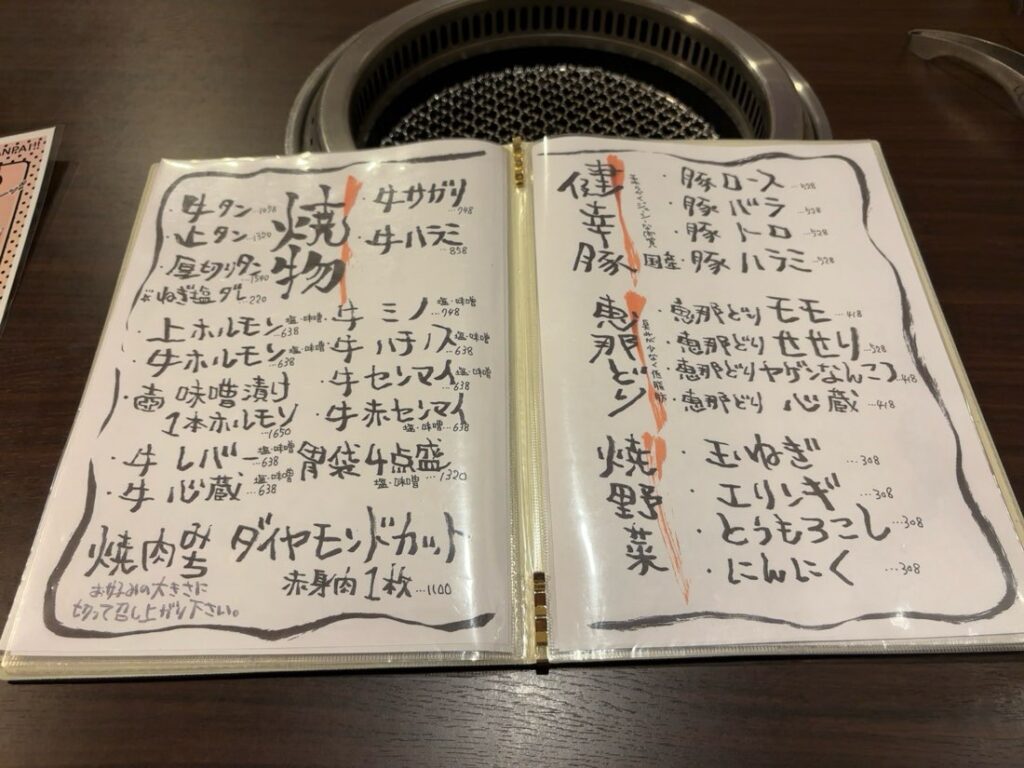 焼物
・牛タン…1078
・上タン…1320
・厚切りタン…1540
☆ねぎ塩ダレ…220
・牛サガリ…748
・牛ハラミ…858
・上ホルモン 塩・味噌…638
・牛ホルモン 塩・味噌…638
・壺味噌漬け
1本ホルモン…1650
・牛レバー 塩・味噌…638
・牛心臓 塩・味噌…638
・牛ミノ 塩・味噌…748
・牛ハチノス 塩・味噌…638
・牛センマイ 塩・味噌…638
・牛赤センマイ 塩・味噌…638
胃袋4点盛 塩・味噌…1320
焼肉みち ダイヤモンドカット
赤身肉1枚…1100
お好みの大きさに
切って召し上がり下さい。
健幸豚
・豚ロース…528
・豚バラ…528
・豚トロ…528
国産・豚ハラミ…528
恵那どり
臭みが少なく低脂肪
・恵那どりモモ…418
・恵那どりせせり…528
・恵那どりヤゲンなんこつ…418
・恵那どり心臓…418
焼野菜
・玉ねぎ…308
・エリンギ…308
・とうもろこし…308
・にんにく…308